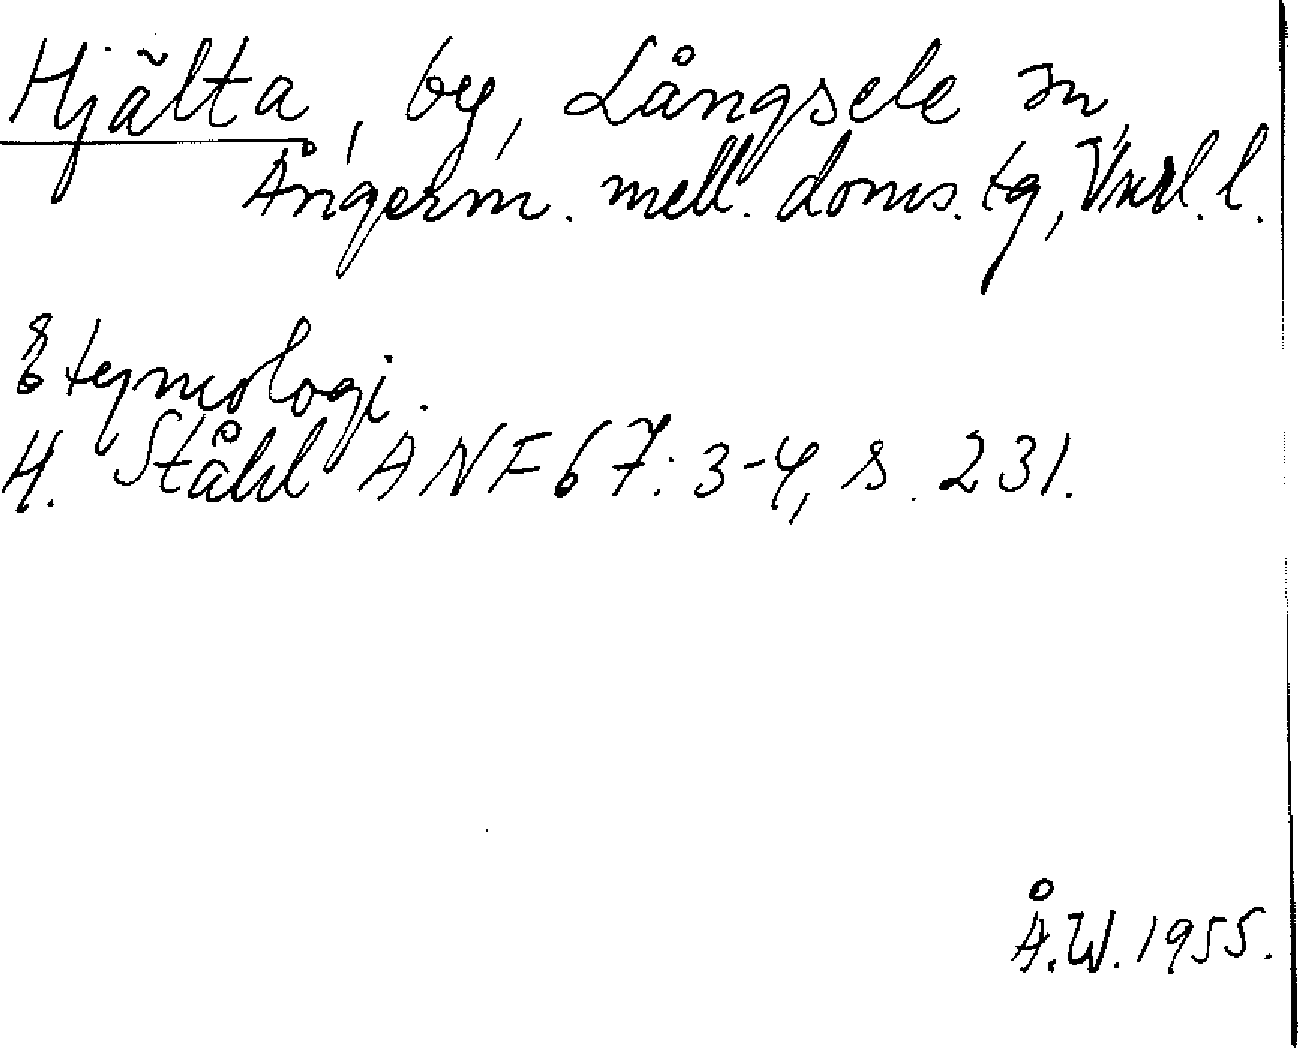 Hjälta, by, Långsele sn
Ångerm. mell. doms. tg, Vnrl. l.
Etymologi.
H. Ståhl ANF 67: 3-4, s. 231.
Å.W. 1955.